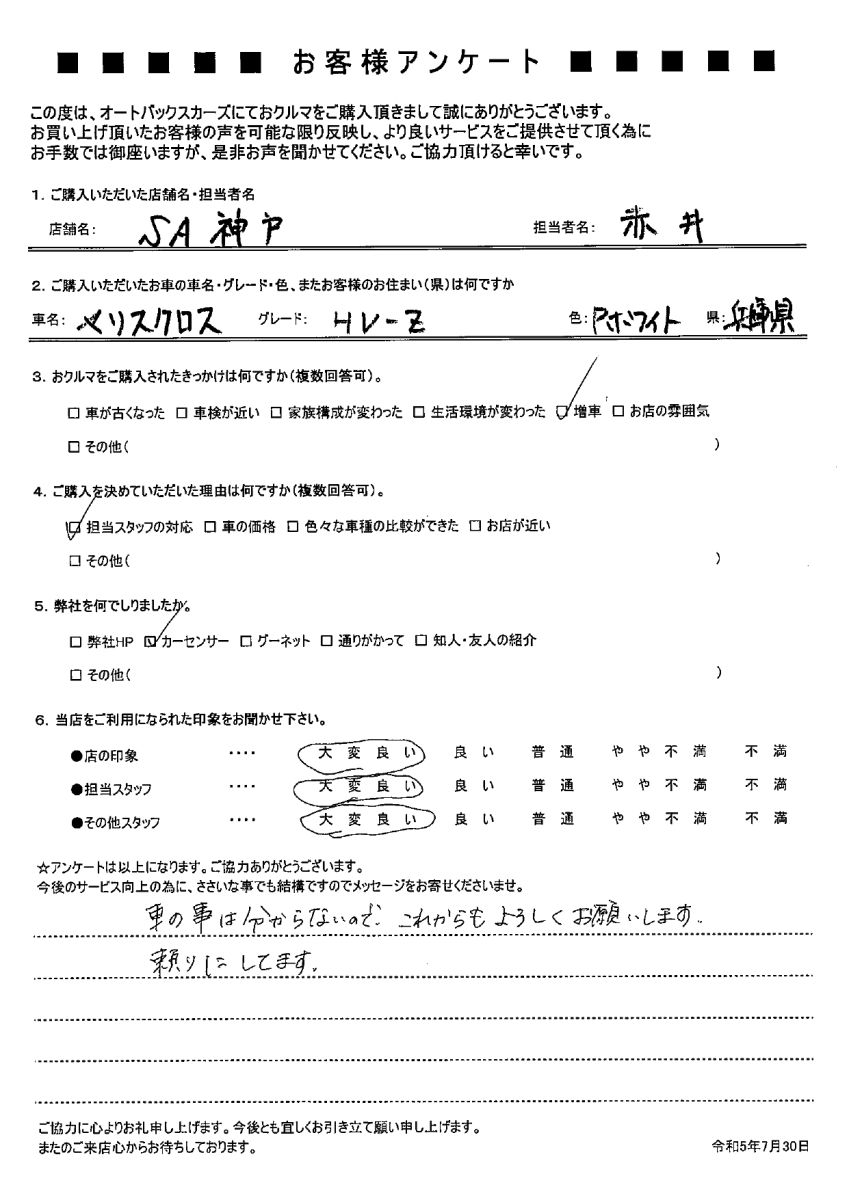 ■ ■ ■ ■ ■ お客様アンケート ■ ■ ■ ■ ■
この度は、オートバックスカーズにておクルマをご購入頂きまして誠にありがとうございます。
お買い上げ頂いたお客様の声を可能な限り反映し、より良いサービスをご提供させて頂く為に
お手数では御座いますが、是非お声を聞かせてください。ご協力頂けると幸いです。
1. ご購入いただいた店舗名・担当者名
店舗名: SA 神戸 担当者名: 赤井
2. ご購入いただいたお車の車名・グレード・色、またお客様のお住まい(県)は何ですか
車名: ヤリスクロス グレード: HV-Z 色: Pホワイト 県: 兵庫県
3. おクルマをご購入されたきっかけは何ですか(複数回答可)。
□ 車が古くなった □ 車検が近い □ 家族構成が変わった □ 生活環境が変わった ☑ 増車 □ お店の雰囲気
□ その他( )
4. ご購入を決めていただいた理由は何ですか(複数回答可)。
☑ 担当スタッフの対応 □ 車の価格 □ 色々な車種の比較ができた □ お店が近い
□ その他( )
5. 弊社を何でしりましたか。
□ 弊社HP ☑ カーセンサー □ グーネット □ 通りがかって □ 知人・友人の紹介
□ その他( )
6. 当店をご利用になられた印象をお聞かせ下さい。
●店の印象 ‥‥ 大変良い 良い 普通 やや不満 不満
●担当スタッフ ‥‥ 大変良い 良い 普通 やや不満 不満
●その他スタッフ ‥‥ 大変良い 良い 普通 やや不満 不満
☆アンケートは以上になります。ご協力ありがとうございます。
今後のサービス向上の為に、ささいな事でも結構ですのでメッセージをお寄せくださいませ。
車の事は分からないので、これからもよろしくお願いします。
頼りにしてます。
ご協力に心よりお礼申し上げます。今後とも宜しくお引き立て願い申し上げます。
またのご来店心からお待ちしております。 令和5年7月30日